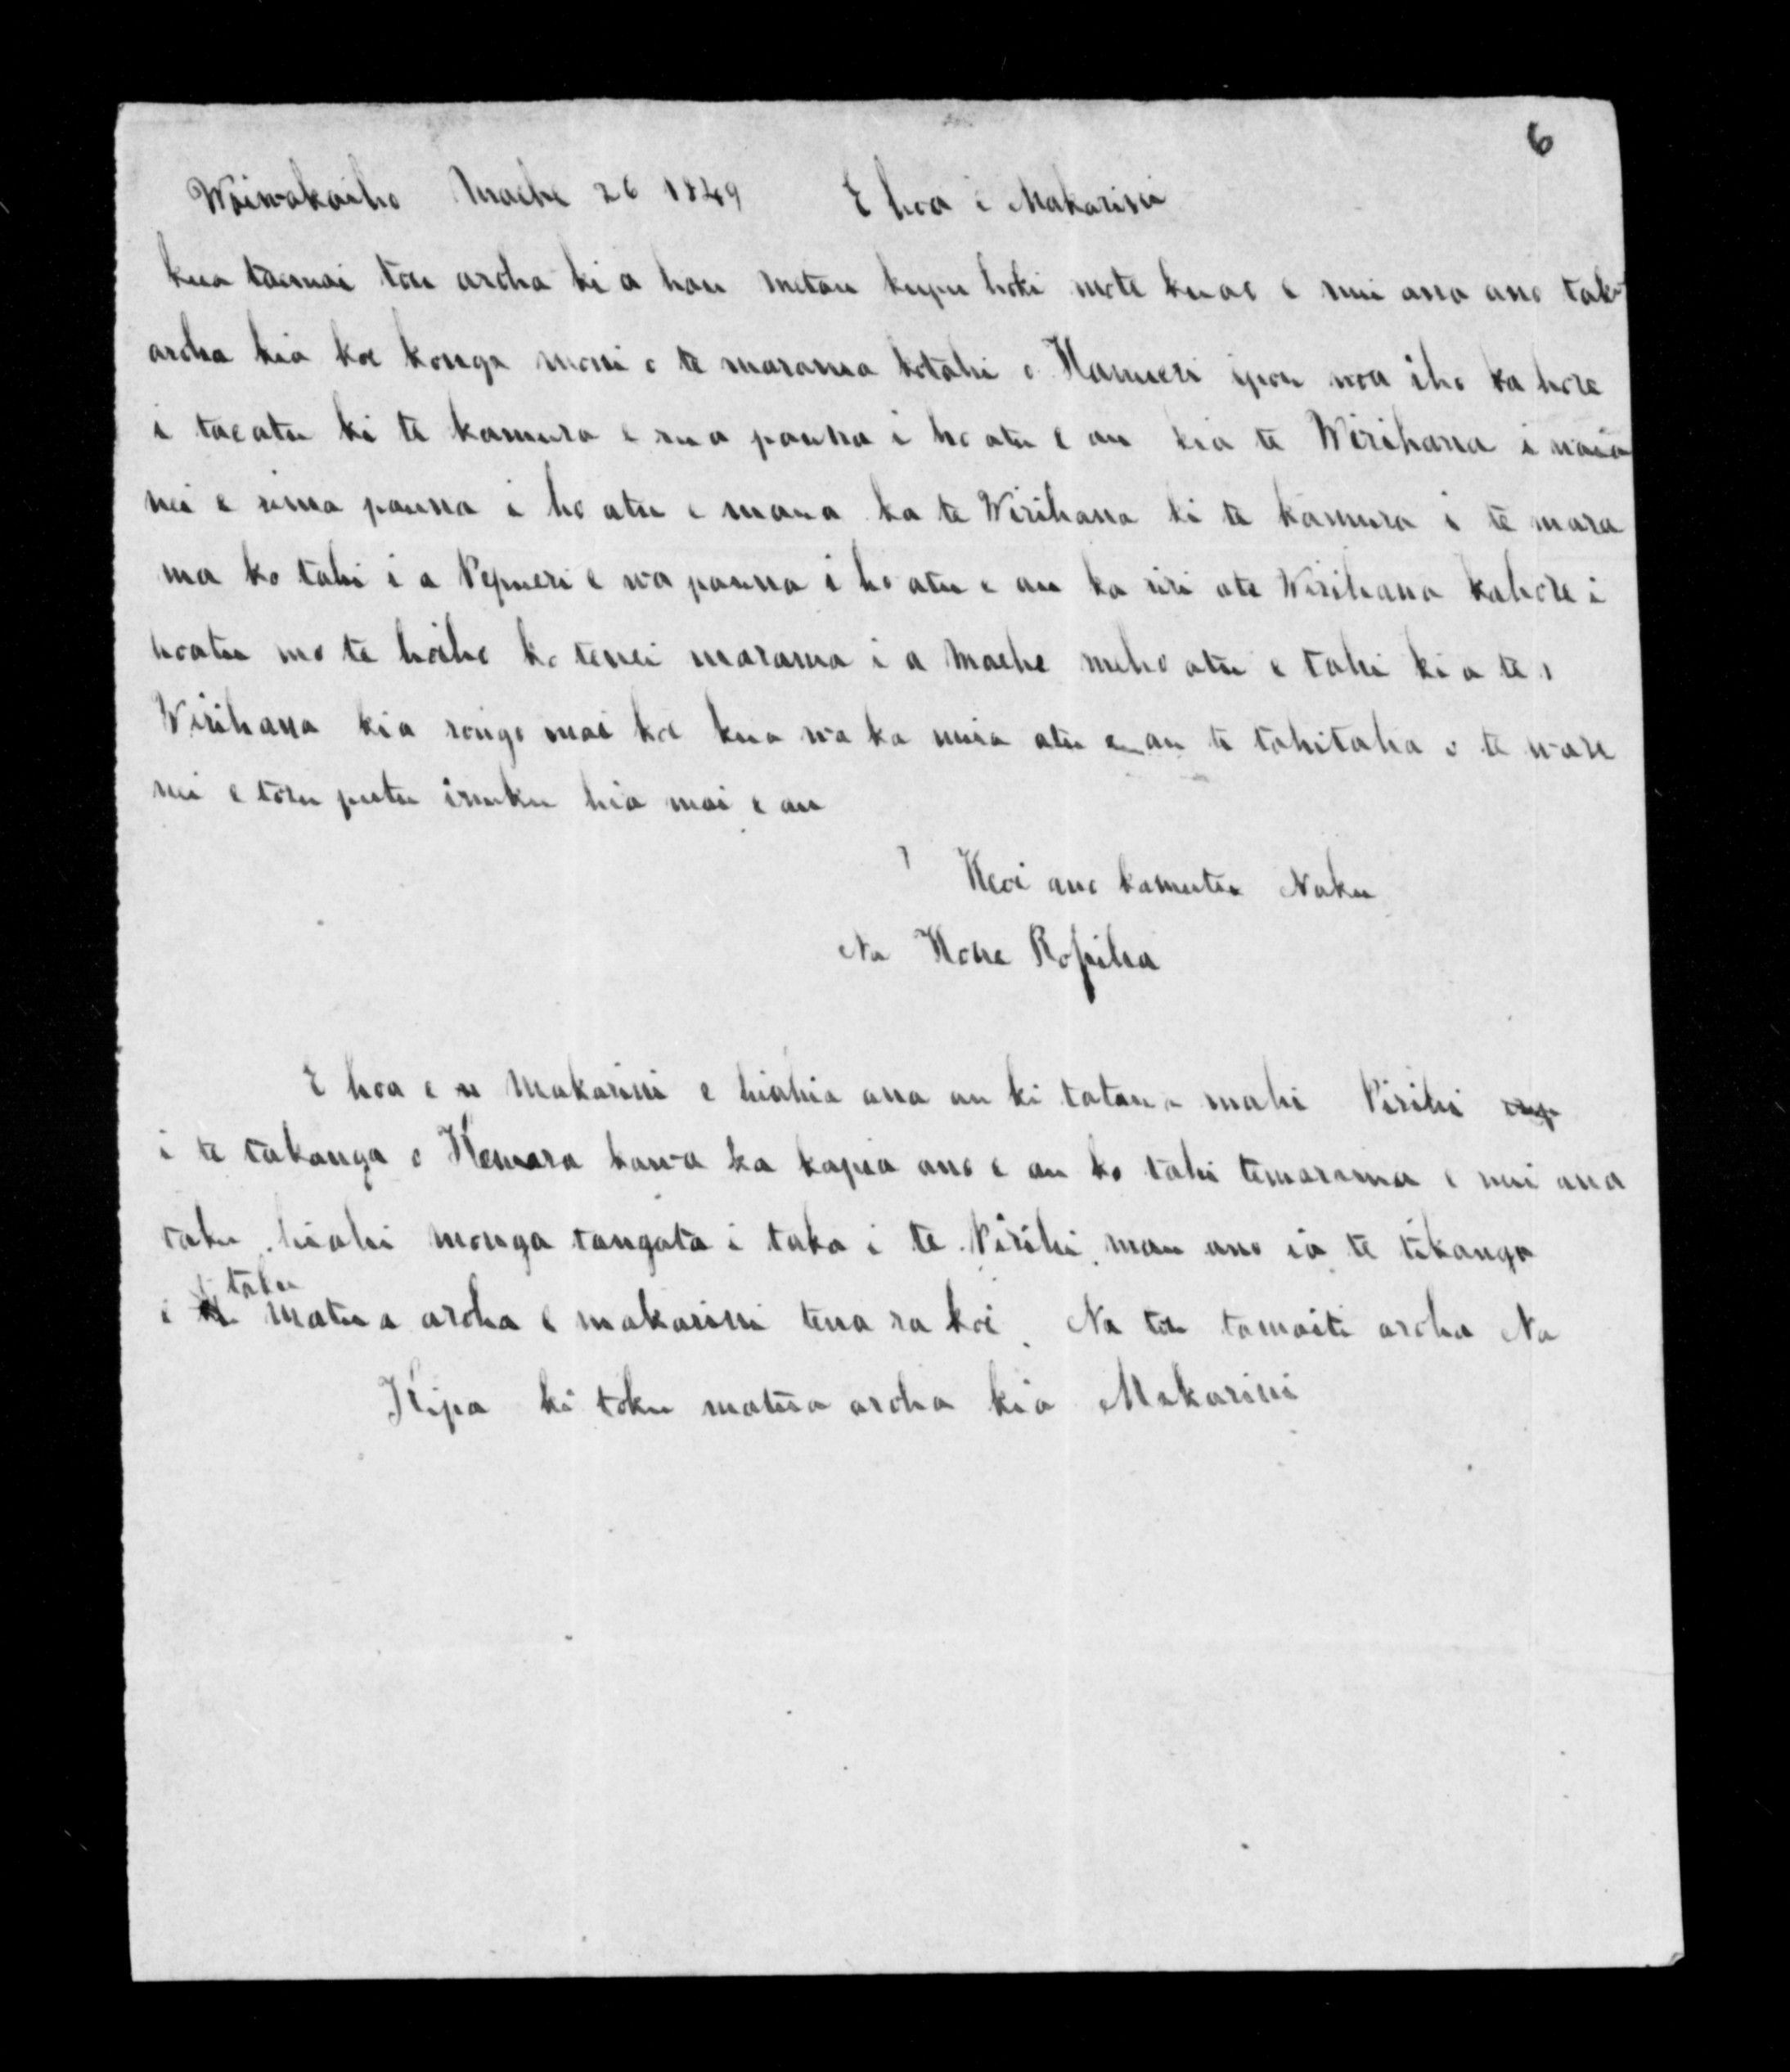 6
Waiwakaiho Maehe 26 1849 E hoa e Makarini
kua taemai tou aroha ki a hau metau kupu hoki mote kuao e nui ana ano taku
aroha kia koe konga moni o te marama kotahi o Hanueri ipou noa iho ka hore
i taeatu ki te kamura e rua pauna i ho atu e au kia te Wirihana i naia
nei e rima pauna i ho atu e maua ka te Wirihana ki te kamura i te mara
ma ko tahi i a Pepueri e wa pauna i ho atu e au ka riri ate Wirihana kahore i
hoatu mo te hoiho ko tenei marama i a Maehe meho atu e tahi ki a te
Wirihana kia rongo mai koe kua wa ka nuia atu e au te tahitaha o te ware
nei e toru putu iruku hia mai e au
Heoi ano kamutu Naku
Na Hone Ropiha
E hoa e Makarini e hiahia ana au ki tatau mahi Pirihi
i te takanga o Hemara kawa ka kapea ano e au ko tahi temarama e nui ana
taku hiahi monga tangata i taka i te Pirihi mau ano ia te tikanga
taku
e matua aroha e makarini tena ra koe Na tou tamaiti aroha Na
Kipa ki toku matua aroha kia Makarini